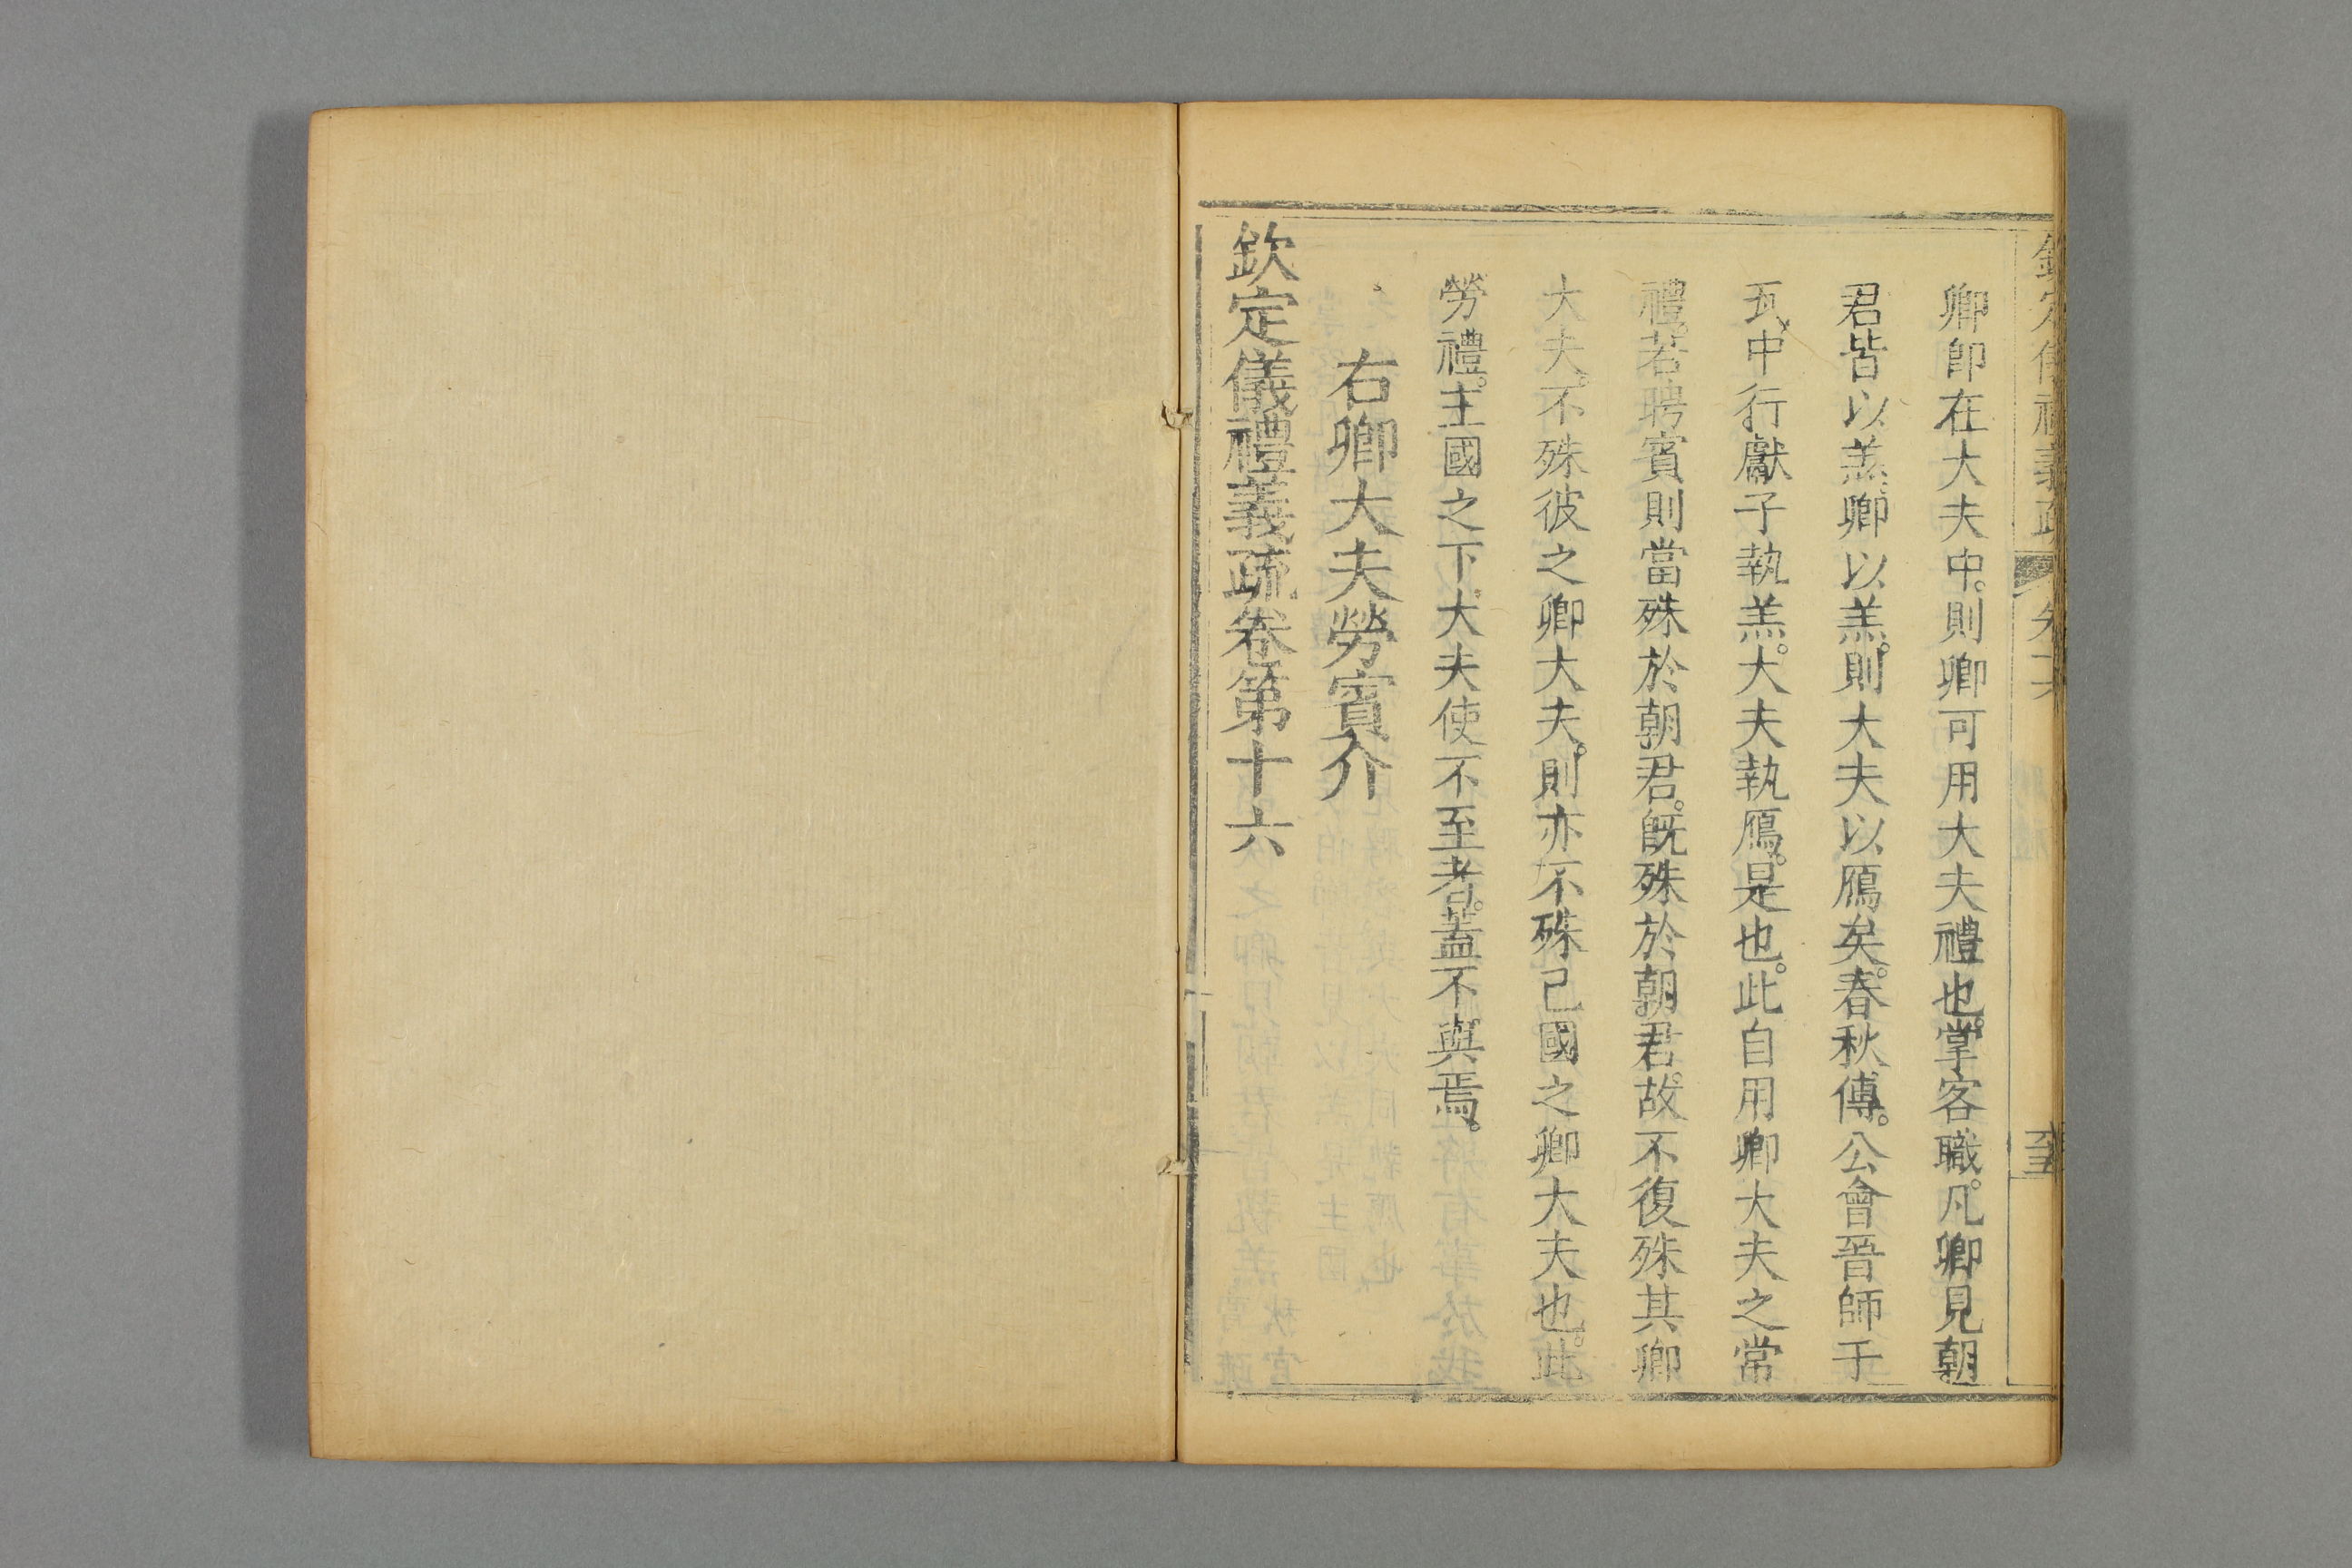 卿卽在大夫中。則卿可用大夫禮也。掌客職。凡卿見朝
君皆以羔。卿以羔。則大夫以鴈矣。春秋傳。公會晉師于
瓦、中行獻子執羔。大夫執鴈。是也。此自用卿大夫之常
禮。若聘賓則當殊於朝君。旣殊於朝君。故不復殊其卿
大夫。不殊彼之卿大夫。則亦不殊己國之卿大夫也。此
勞禮。主國之下大夫使不至者。蓋不與焉。
右卿大夫勞賓介
欽定儀禮義疏卷第十六